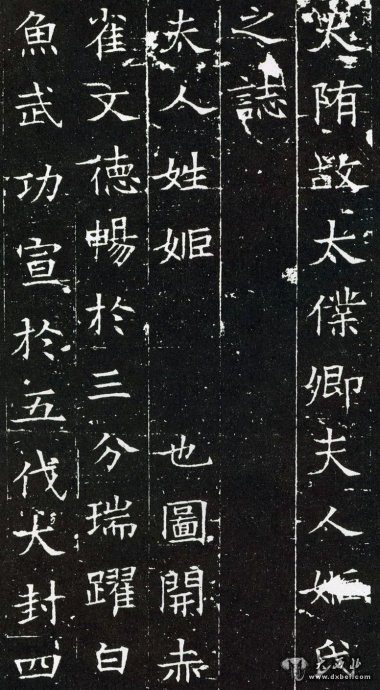 大隋故太僕卿夫人姬氏
之誌
夫人姓姬 也圖開赤
雀文德暢於三分瑞躍白
魚武功宣於五伐大封四
www.dxbei.com